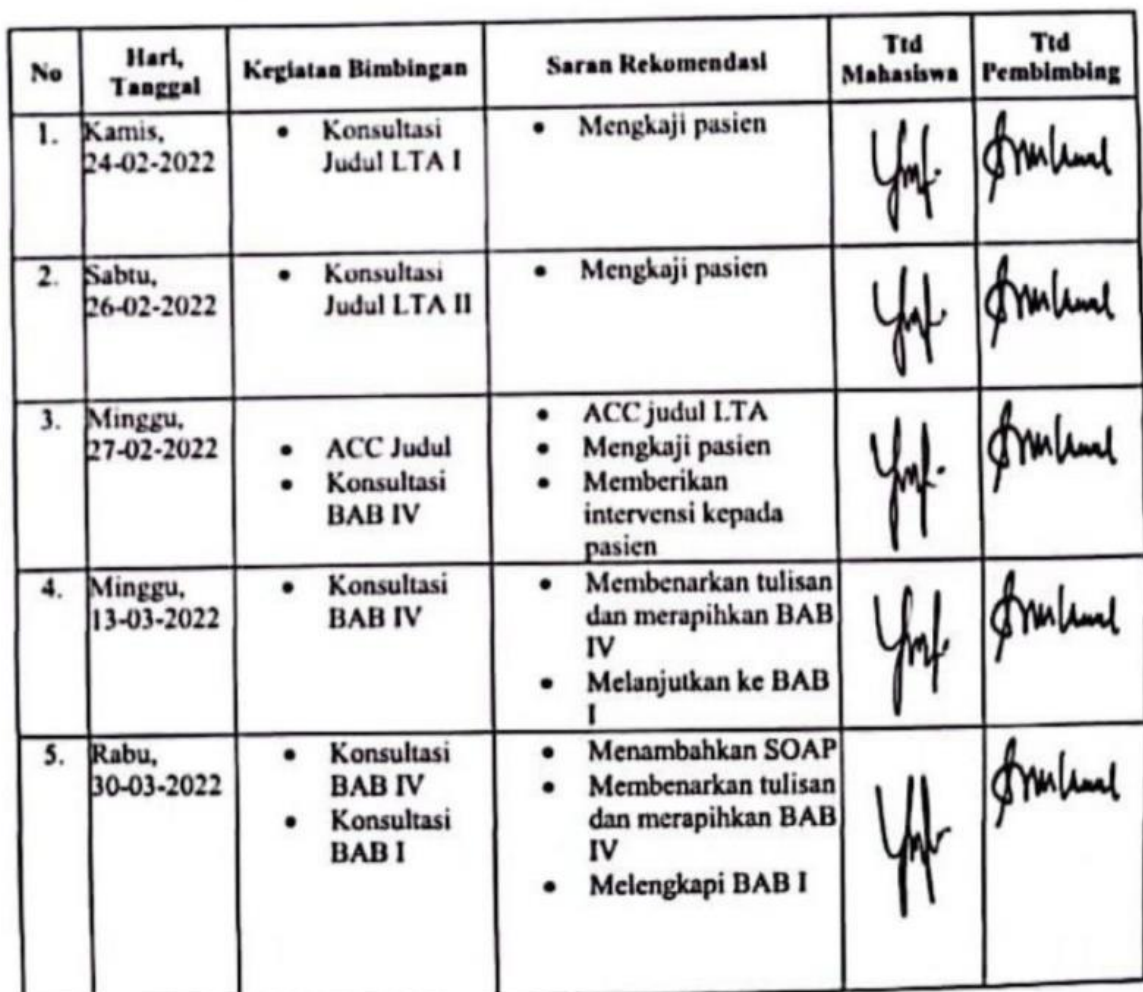 No
Hari,
Tanggal
Kegiatan Bimbingan
Saran Rekomendasi
Ttd
Mahasiswa
Ttd
Pembimbing
1.
Kamis,
24-02-2022
• Konsultasi
Judul LTA I
• Mengkaji pasien
2.
Sabtu,
26-02-2022
• Konsultasi
Judul LTA II
• Mengkaji pasien
3.
Minggu,
27-02-2022
• ACC Judul
• Konsultasi
BAB IV
• ACC judul LTA
• Mengkaji pasien
• Memberikan
intervensi kepada
pasien
4.
Minggu,
13-03-2022
• Konsultasi
BAB IV
• Membenarkan tulisan
dan merapihkan BAB
IV
• Melanjutkan ke BAB
I
5.
Rabu,
30-03-2022
• Konsultasi
BAB IV
• Konsultasi
BAB I
• Menambahkan SOAP
• Membenarkan tulisan
dan merapihkan BAB
IV
• Melengkapi BAB I